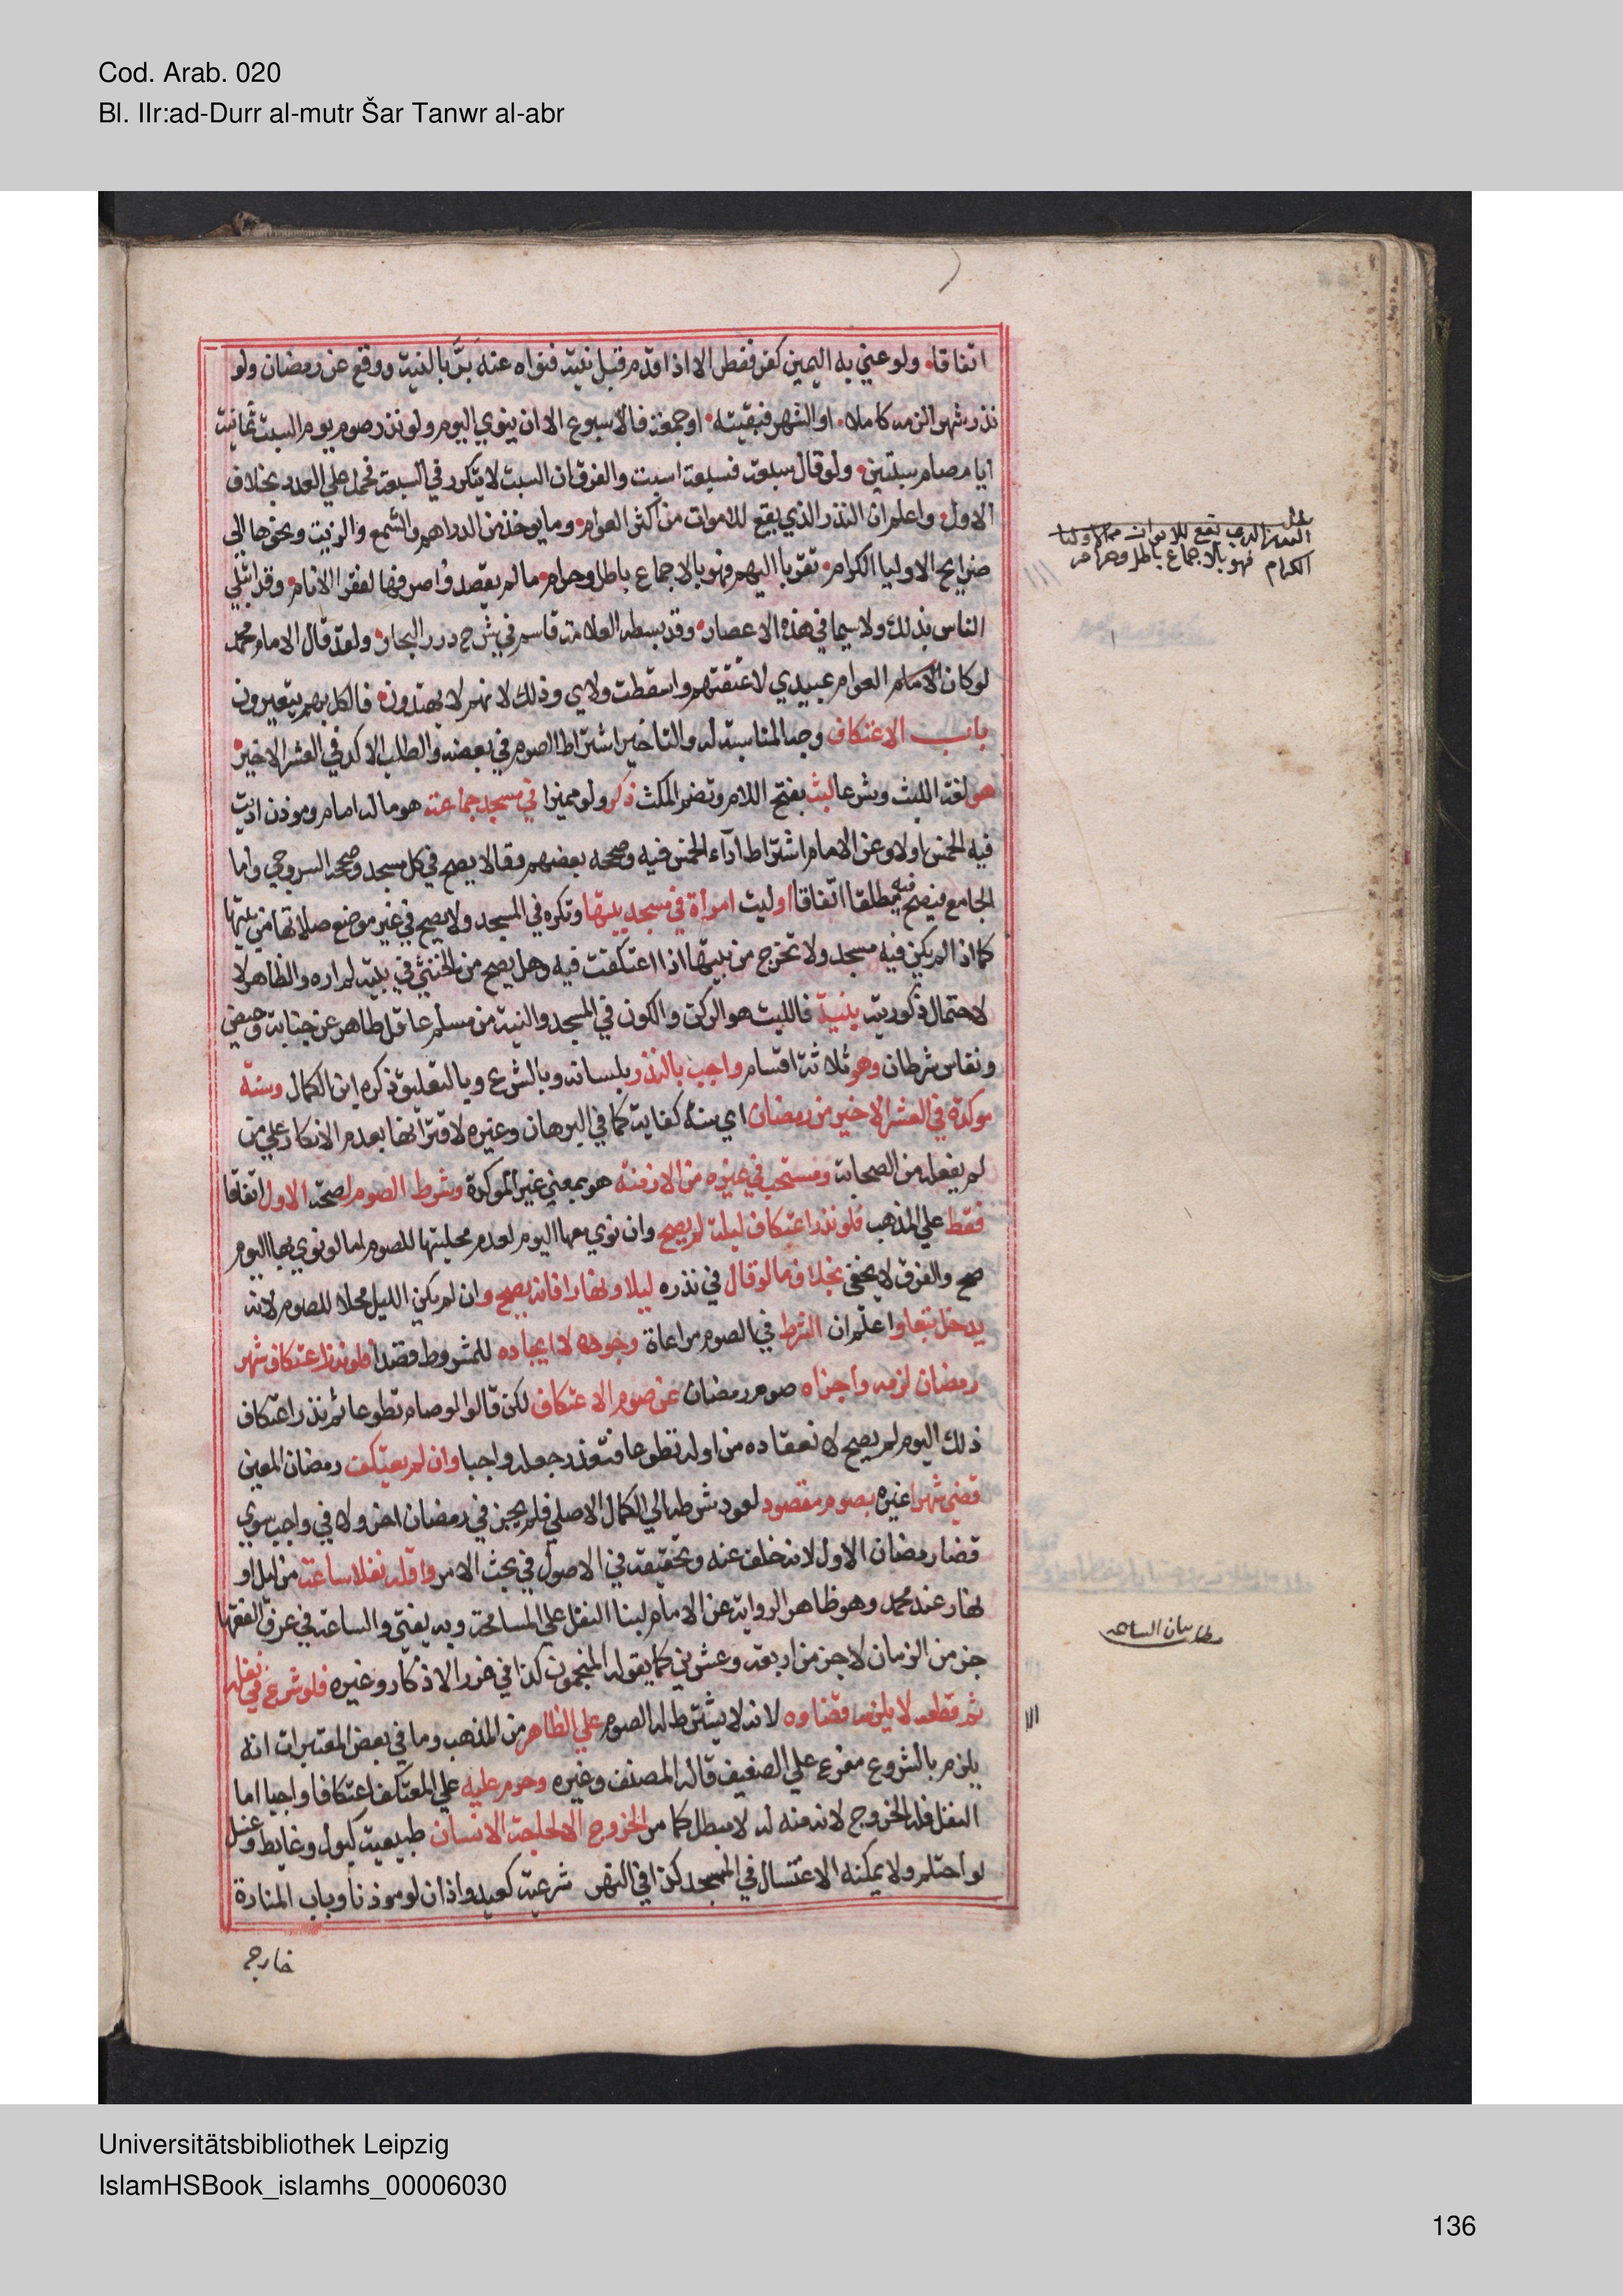 Cod. Arab. 020
Bl. IIr:ad-Durr al-mutr Šar Tanwr al-abr
اتفاقا ولو عني به اليمين كفر فقط الا اذا قدم قبل نيته فنواه عنه برّ بالنية ووقع عن رمضان ولو
نذر شهرا لزمه كاملا او الشهر فبقيته او جمعة فالاسبوع الا ان ينوي اليوم ولو نذر صوم يوم السبت ثمانية
ايام صام سبتين ولو قال سبعة فسبعة اسبت والفرق ان السبت لا يتكرر في السبعة فحمل علي العدد بخلاف
الاول واعلم ان النذر الذي يقع للاموات من اكثر العوام وما يوخذ من الدراهم والشمع والزيت ونحوها الي
ضرايح الاوليا الكرام تقربا اليهم فهو بالاجماع باطل وحرام ما لم يقصدوا صرفها لفقرا الانام وقد ابتلي
الناس بذلك ولا سيما في هذه الاعصار وقد بسطه العلامة قاسم في شرح درر البحار ولقد قال الامام محمد
لو كان العوام عبيدي لاعتقتهم واسقطت ولاي وذلك لانهم لا يهتدون فالكل بهم يتعيرون
باب الاعتكاف وجه المناسبة له والتاخير اشتراط الصوم في بعضه والطلب الاكد في العشر الاخير
هو لغة اللبث وشرعا لبث بفتح اللام وتضم المكث ذكر ولو مميزا في مسجد جماعة هو ما له امام وموذن اديت
فيه الخمس او لا وعن الامام اشتراط ادآء الخمس فيه وصححه بعضهم وقالا يصح في كل مسجد وصححه السروجي واما
الجامع فيصح فيه مطلقا اتفاقا او لبث امراة في مسجد بيتها وتكره في المسجد ولا يصح في غير موضع صلاتها من بيتها
كما اذا لم يكن فيه مسجد ولا تخرج من بيتها اذا اعتكفت فيه وهل يصح من الخنثي في بيته لم اره والظاهر لا
لاحتمال ذكوريته بنية فاللبث هو الركن والكون في المسجد والنية من مسلم عاقل طاهر عن جنابة وحيض
ونفاس شرطان وهو ثلاثة اقسام واجب بالنذر بلسانه وبالشروع وبالتعليق ذكره ابن الكمال وسنة
موكدة في العشر الاخير من رمضان اي سنة كفاية كما في البرهان وغيره لاقترانها بعدم الانكار علي من
لم يفعله من الصحابة ومستحب في غيره من الازمنة هو بمعني غير الموكدة وشرط الصوم لصحة الاول اتفاقا
فقط علي المذهب فلو نذر اعتكاف ليلة لم يصح وان نوي معها اليوم لعدم محليتها للصوم اما لو نوي بها اليوم
صح والفرق لا يخفي بخلاف ما لو قال في نذره ليلا ونهارا فانه يصح وان لم يكن الليل محلا للصوم لانه
يدخل تبعا واعلم ان الشرط في الصوم مراعاة وجوده لا ايجاده للمشروط قصدا فلو نذر اعتكاف شهر
رمضان لزمه واجزاه صوم رمضان عن صوم الاعتكاف لكن قالوا لو صام تطوعا ثم نذر اعتكاف
ذلك اليوم لم يصح لانعقاده من اوله تطوعا فتعذر جعله واجبا وان لم يعتكف رمضان المعين
قضي شهرا غيره بصوم مقصود لعود شرطه الي الكمال الاصلي فلم يجز في رمضان اخر ولا في واجب سوي
قضا رمضان الاول لانه خلف عنه وتحقيقه في الاصول في بحث الامر واقله نفلا ساعة من ليل او
نهار عند محمد وهو ظاهر الرواية عن الامام لبنا النفل علي المسامحة وبه يفتي والساعة في عرف الفقها
جز من الزمان لا جز من اربعة وعشرين كما يقوله المنجمون كذا في غرر الاذكار وغيره فلو شرع في نفله
ثم قطعه لا يلزمه قضاوه لانه لا يشترط له الصوم علي الظاهر من المذهب وما في بعض المعتبرات انه
يلزم بالشروع مفرع علي الضعيف قاله المصنف وغيره وحرم عليه علي المعتكف اعتكافا واجبا اما
النفل فله الخروج لانه منه له لا مبطل كما مر الخروج الا لحاجة الانسان طبيعية كبول وغايط وغسل
لو احتلم ولا يمكنه الاغتسال في المسجد كذا في النهر شرعية كعيد واذان لو موذنا وباب المنارة
خارج
النذر الذي يقع للاموات
الكرام فهو بالاجماع باطل وحرام
مطلب بيان الساعه
Universitätsbibliothek Leipzig
IslamHSBook_islamhs_00006030
136